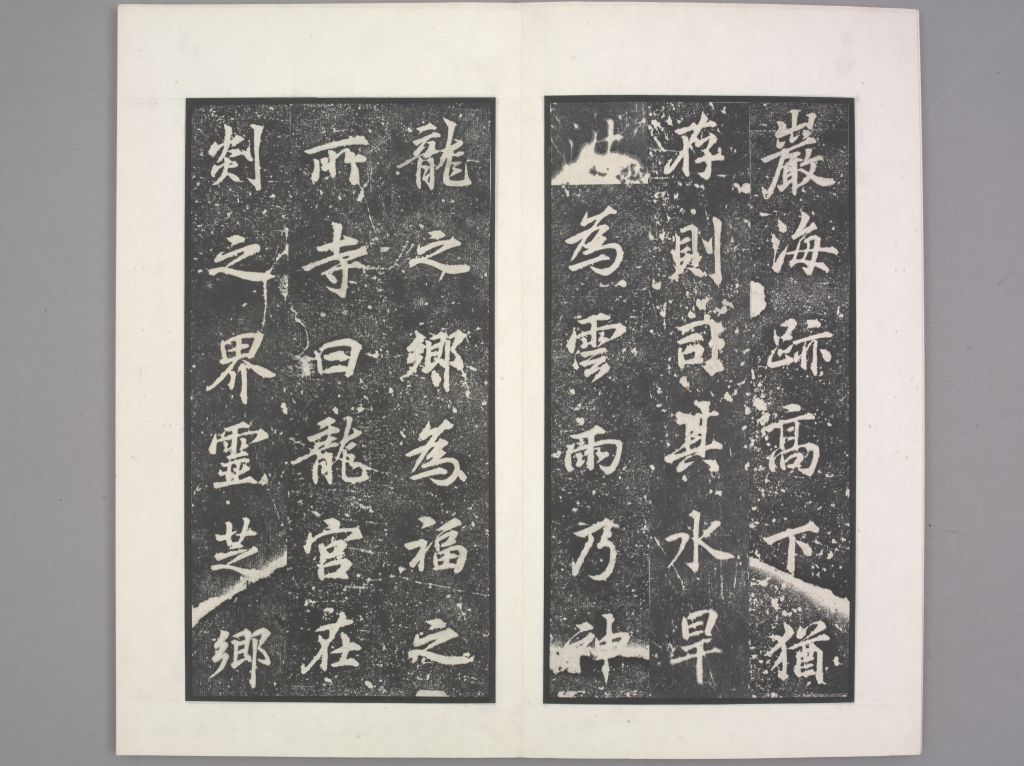 巖海跡髙下猶
存則司其水旱
為雲雨乃神
龍之鄉為福之
所寺曰龍宮在
剡之界靈芝鄉